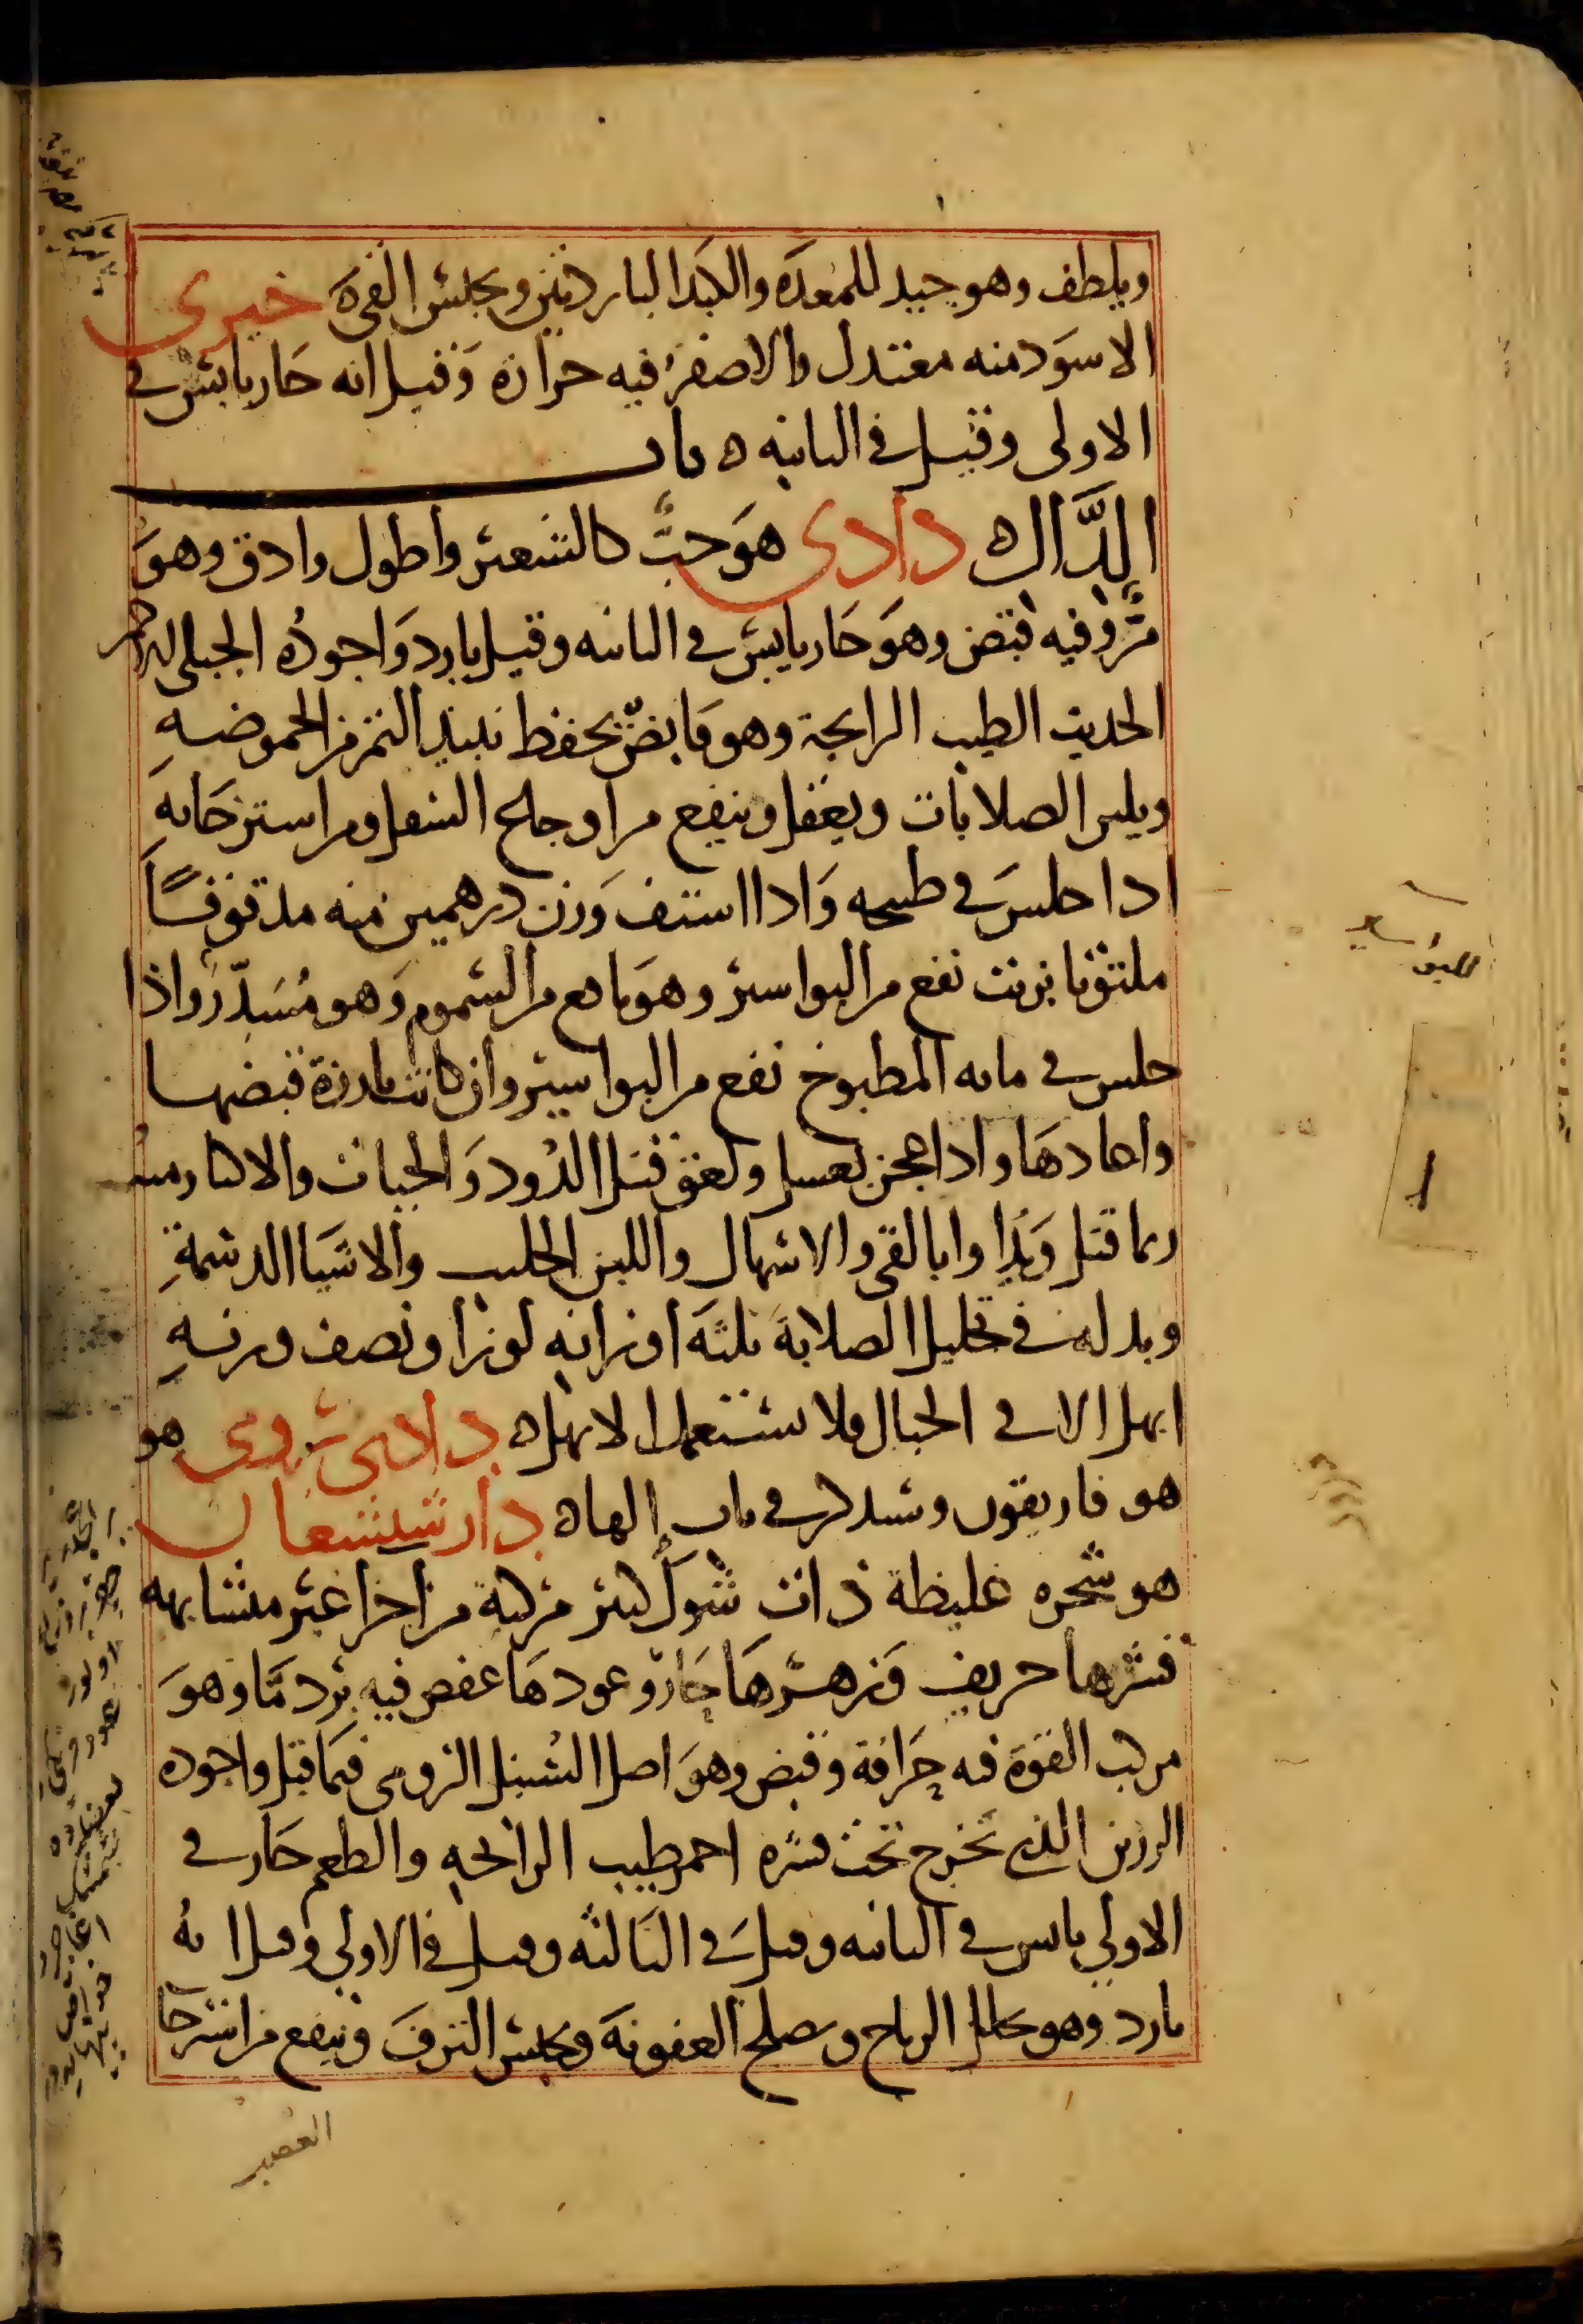 ويلطف وهو جيد للمعدة والكبد الباردتين ويحبس القيء خيرى
الاسود منه معتدل والاصفر فيه حرارة وقيل انه حار يابس في
الاولى وقيل في الثانيه ه باب
الدَّال ه دادى هو حبّ كالشعير واطول وادق وهو
مرّ وفيه قبض وهو حار يابس في الثانيه وقيل بارد واجوده الجبلى الاحمر
الحديث الطيب الرايحة وهو قابض يحفظ نبيذ التمر من الحموضه
ويلين الصلابات ويعقل وينفع من اوجاع السفل ومن استرخائه
اذا جلس في طبيخه واذا استف وزن درهمين منه مدقوقًا
ملتوتا بزيت نفع من البواسير وهو نافع من السموم وهو مُسَدِّر واذا
جلس في مائه المطبوخ نفع من البواسير وان كانت بارزة قبضها
واعادها واذا عجن بعسل ولعق قتل الدود والحيات والاكثار منه
ربما قتل ويداوا بالقى والاسهال واللبن الحليب والاشيا الدسمة
وبدله في تحليل الصلابة ثلثة اوزانه لوزا ونصف وزنه
ابهل الا في الحبالى فلا يستعمل الابهل ه دادى رومى هو
هو فاريقون وسيذكر في باب الها ه دار شيشعان
هو شجره غليظة ذات شوك كثير مركبة من اجزا غير متشابهه
قشرها حريف وزهرها حار وعودها عفص فيه برد مّا وهو
مركب القوة فيه حرافة وقبض وهو اصل السنبل الرومى فيما قيل واجوده
الرزين الذي تخرج تحت قشره احمر طيب الرائحه والطعم حار في
الاولي يابس في الثانيه وقيل في الثالثه وقيل في الاولي وقيل انه
بارد وهو يحلل الرياح ويصلح العفونة ويحبس النزف وينفع من استرخا
العصب